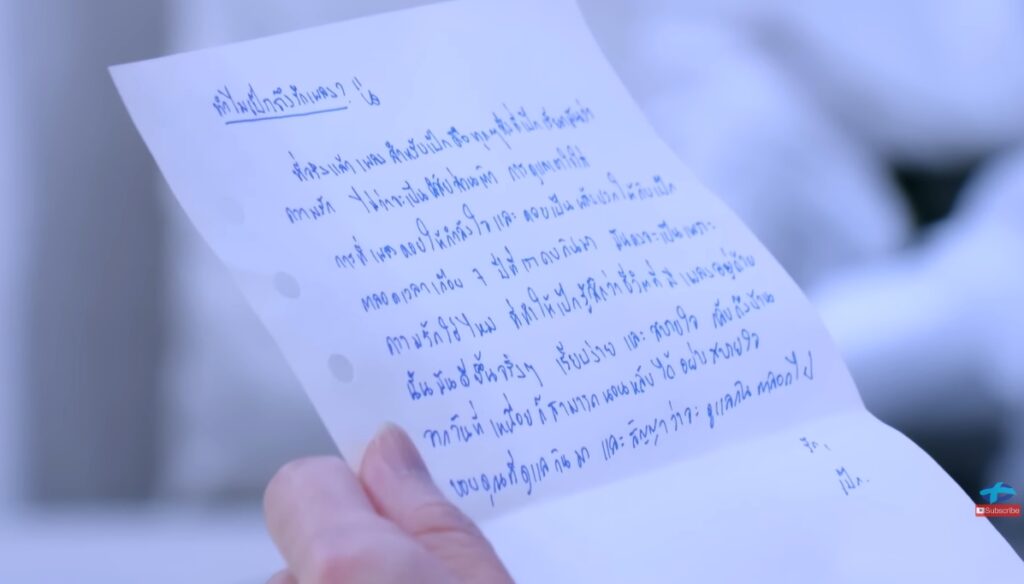 ทำไมเป๊กถึงรักเพลง?
ที่จริงแล้ว เพลง สำหรับเป๊กคือทุกๆสิ่งที่เป๊ก
ความรัก ไม่ว่าจะเป็น การดูแลเอาใจใส่
การที่เพลงคอยให้กำลังใจ และ คอยเป็น ให้กับเป๊ก
ตลอดเวลาเกือบ 7 ปีที่เราคบกันมา มันคงจะเป็นเพราะ
ความรักใช่ไหม ที่ทำให้เป๊กรู้สึกว่าชีวิตที่มี เพลงอยู่ด้วย
นั้นมันดีขึ้นจริงๆ เรียบง่าย และ สบายใจ กลับถึงบ้าน
จากวันที่เหนื่อยก็สามารถนอนหลับได้ อย่างสบายใจ
ขอบคุณที่ดูแลกันมา และ สัญญาว่าจะ ดูแลกันตลอดไป
รัก,
เป๊ก.
Subscribe